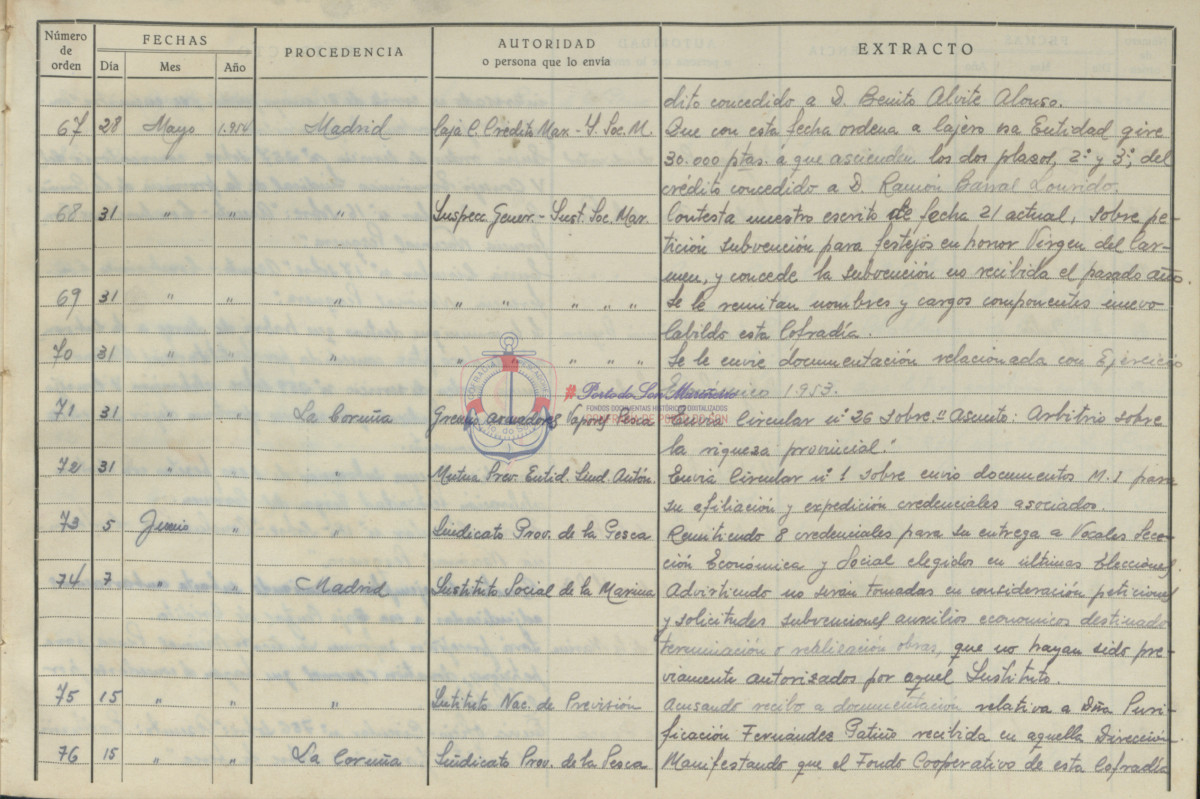 Número de orden FECHAS PROCEDENCIA AUTORIDAD o persona que lo envía EXTRACTO
Día Mes Año
dito concedido a D. Benito Alvite Alonso.
67 28 Mayo 1.954 Madrid Caja C. Crédito Mar.- I. Soc. M. Que con esta fecha ordena a cajero esa Entidad gire
30.000 ptas. a que ascienden los dos plazos, 2º y 3º, del
crédito concedido a D. Ramón Barral Lourido.
68 31 " " " Inspecc. Gener.- Inst. Soc. Mar. Contesta nuestro escrito de fecha 21 actual, sobre pe-
tición subvención para festejos en honor Virgen del Car-
men, y concede la subvención no recibida el pasado año.
69 31 " " " " " " " " Se le remitan nombres y cargos componentes nuevo
Cabildo esta Cofradía.
70 31 " " " " " " " " Se le envie documentación relacionada con Ejercicio
Económico 1.953.
71 31 " " La Coruña Gremio armadores Vapores Pesca Envía Circular nº 26 sobre "Asunto: Arbitrio sobre
la riqueza provincial."
72 31 " " Mutua Prev. Entid. Sind. Autón. Envia Circular nº 1 sobre envio documentos M.1 para
su afiliación y expedición credenciales asociados.
73 5 Junio " Sindicato Prov. de la Pesca Remitiendo 8 credenciales para su entrega a Vocales Secc-
ción Económica y Social elegidos en últimas Elecciones.
74 7 " Madrid Instituto Social de la Marina Advirtiendo no serán tomadas en consideración peticiones
y solicitudes subvenciones auxilios economicos destinado
terminación o realización obras, que no hayan sido pre-
viamente autorizados por aquel Instituto.
75 15 " " " Instituto Nac. de Previsión Acusando recibo a documentación relativa a Dña Puri-
ficación Fernández Patiño recibida en aquella Dirección.
76 15 " " La Coruña Sindicato Prov. de la Pesca Manifestando que el Fondo Cooperativo de esta Cofradía
# Porto do Son Mariñeiro
FONDOS DOCUMENTAIS HISTÓRICOS DIGITALIZADOS
COFRADÍA DE PORTO DO SON